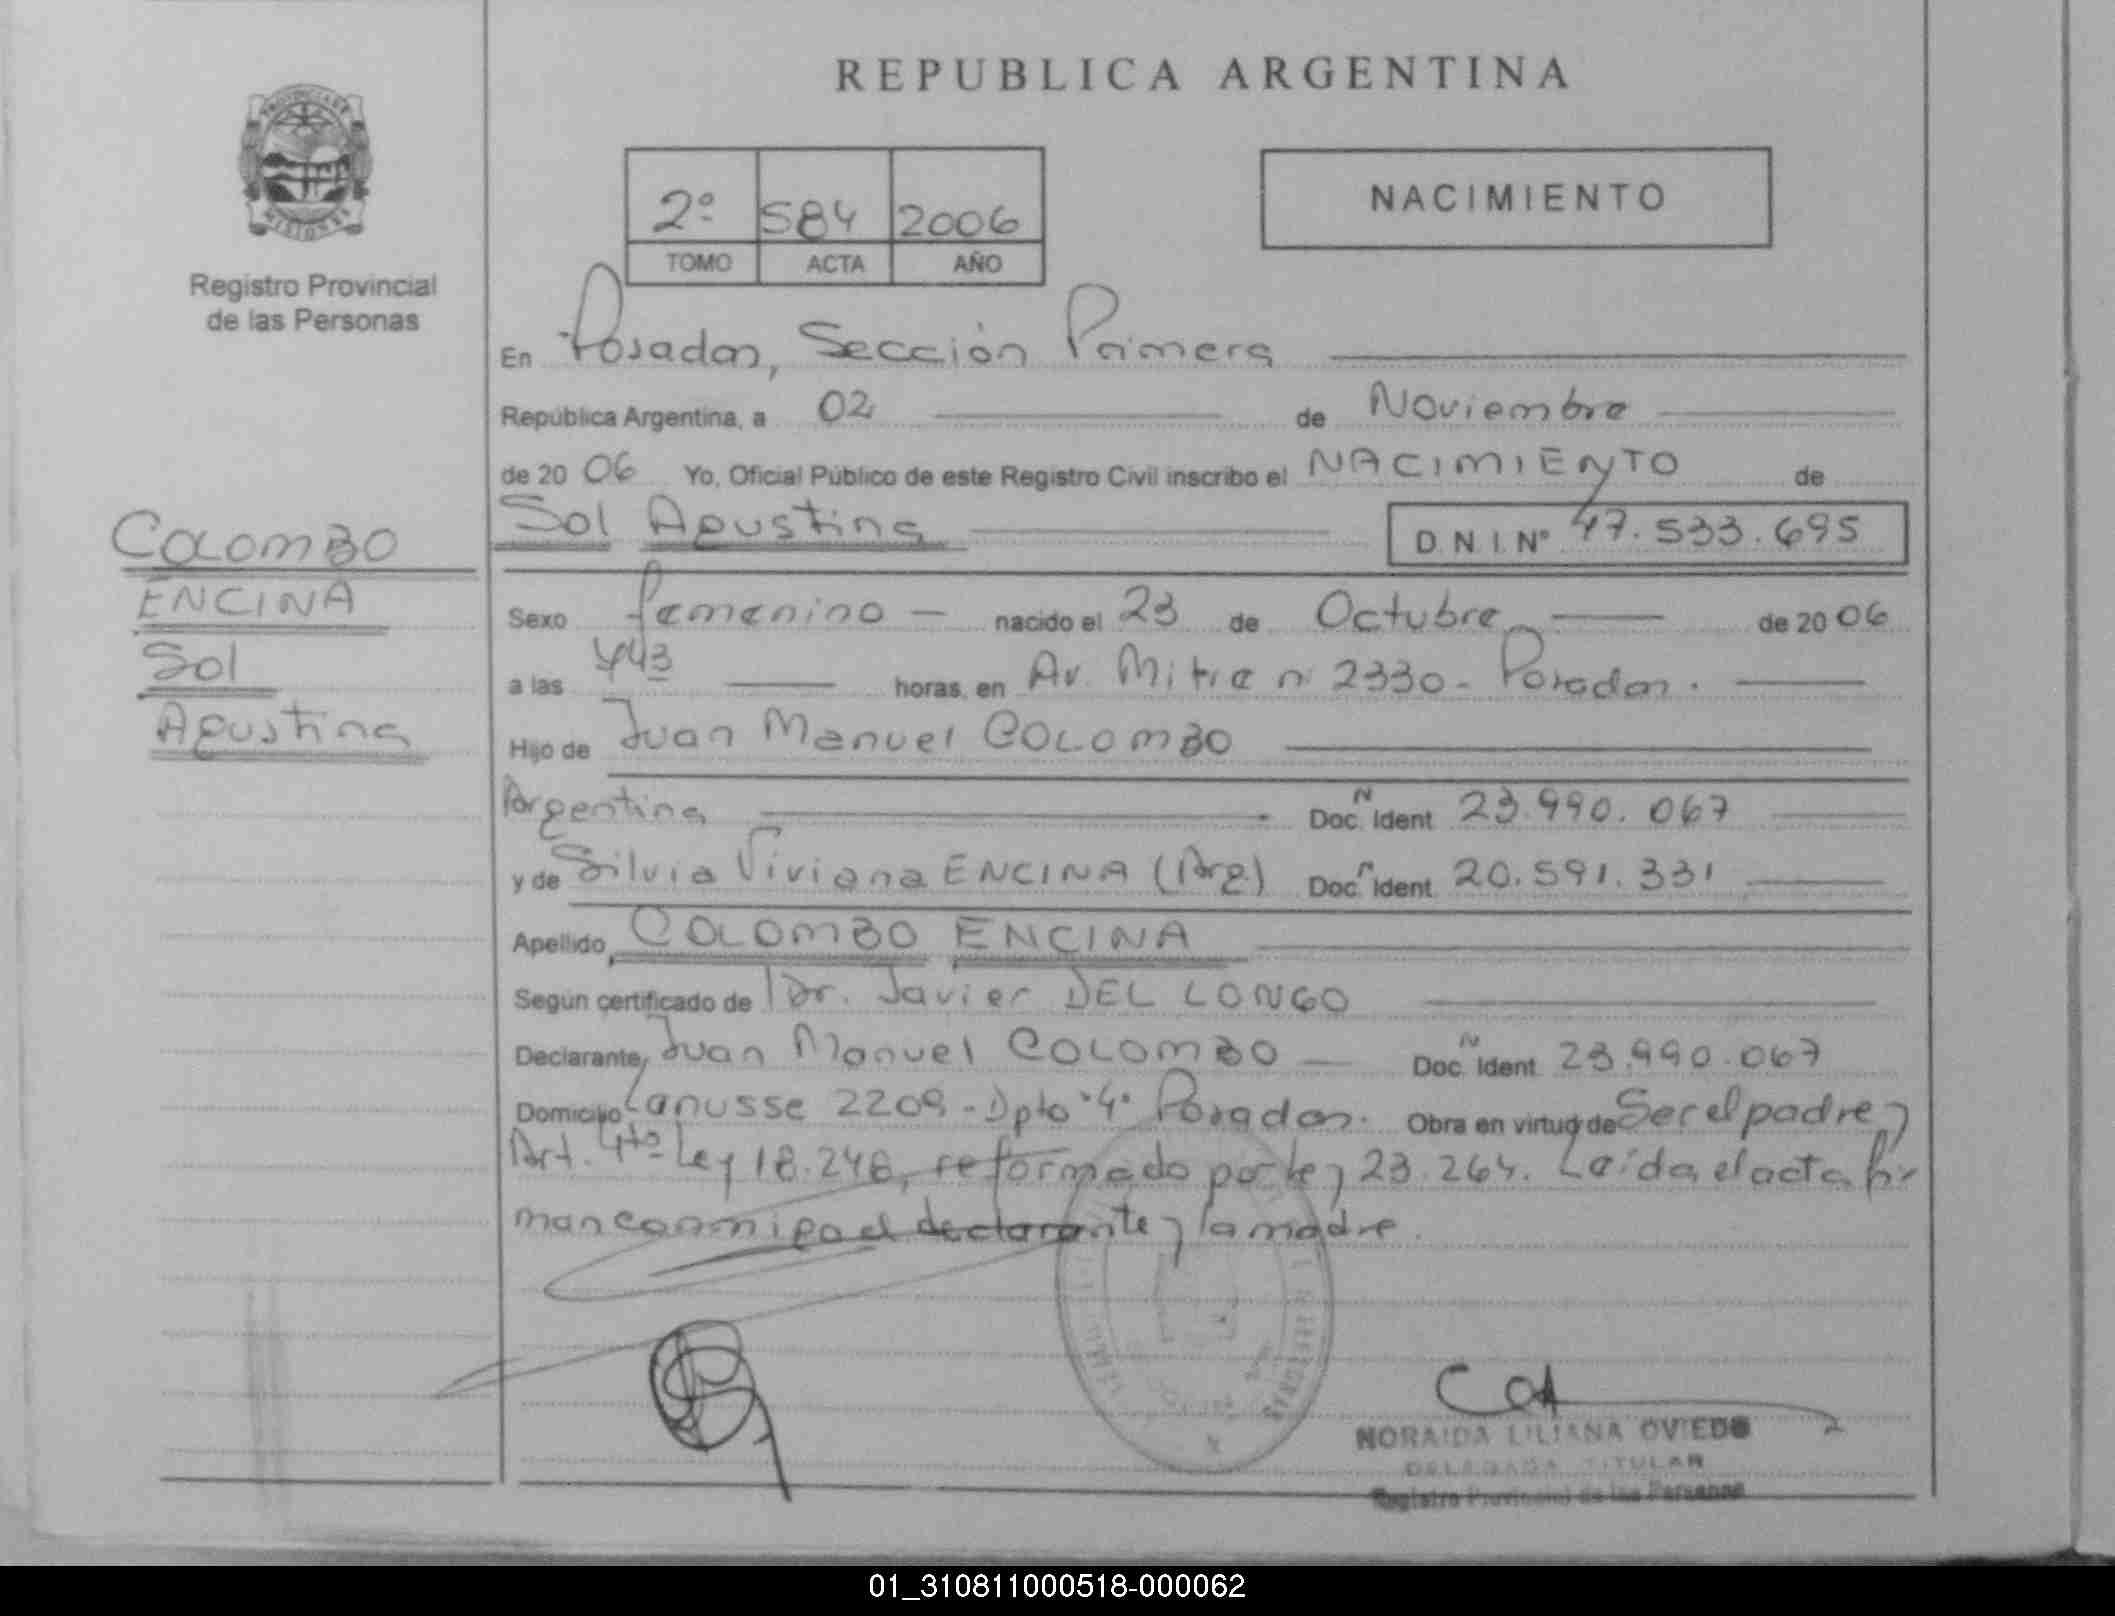 REPUBLICA ARGENTINA
PROVINCIA DE
MISIONES
Registro Provincial
de las Personas
2º 584 2006
TOMO ACTA AÑO
NACIMIENTO
En Posadas, Sección Primera
República Argentina, a 02 de Noviembre
de 20 06 Yo, Oficial Público de este Registro Civil inscribo el NACIMIENTO de
Sol Agustina D.N.I. Nº 47.533.695
COLOMBO
ENCINA
Sol
Agustina
Sexo femenino nacido el 23 de Octubre de 20 06
a las horas, en Av. Mitre nº 2330 - Posadas.
Hijo de Juan Manuel COLOMBO
Argentina Doc. N Ident 23.990.067
y de Silvia Viviana ENCINA (Arg) Doc. N Ident. 20.591.331
Apellido COLOMBO ENCINA
Según certificado de Dr. Javier DEL LONGO
Declarante, Juan Manuel COLOMBO Doc. N Ident. 23.990.067
Domicilio Lanusse 2209 - Dpto "4" Posadas. Obra en virtud de Ser el padre y
Art. 4to Ley 18.248, reformado por ley 23.264. Leída el acta fir
man conmigo el declarante y la madre.
NORAIDA LILIANA OVIEDO
DELEGADA TITULAR
Registro Provincial de las Personas
01_310811000518-000062